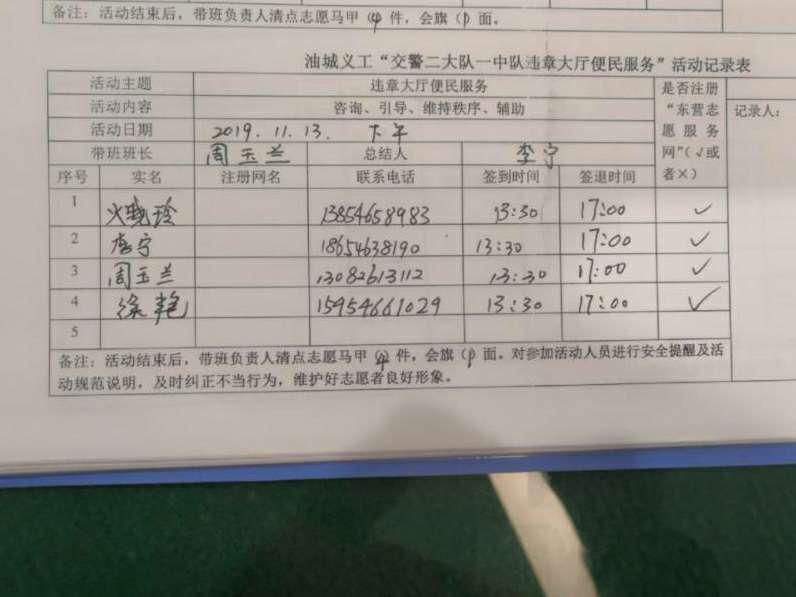 备注：活动结束后，带班负责人清点志愿马甲（4）件，会旗（1）面。
油城义工“交警二大队一中队违章大厅便民服务”活动记录表
活动主题 违章大厅便民服务 是否注册“东营志愿服务网”（√或者×） 记录人：
活动内容 咨询、引导、维持秩序、辅助
活动日期 2019.11.13. 下午
带班班长 周玉兰 总结人 李宁
序号 实名 注册网名 联系电话 签到时间 签退时间
1 火晓玲 13854658983 13:30 17:00 ✓
2 李宁 18654638190 13:30 17:00 ✓
3 周玉兰 13082613112 13:30 17:00 ✓
4 徐艳 15954661029 13:30 17:00 ✓
5
备注：活动结束后，带班负责人清点志愿马甲（4）件，会旗（1）面。对参加活动人员进行安全提醒及活
动规范说明，及时纠正不当行为，维护好志愿者良好形象。